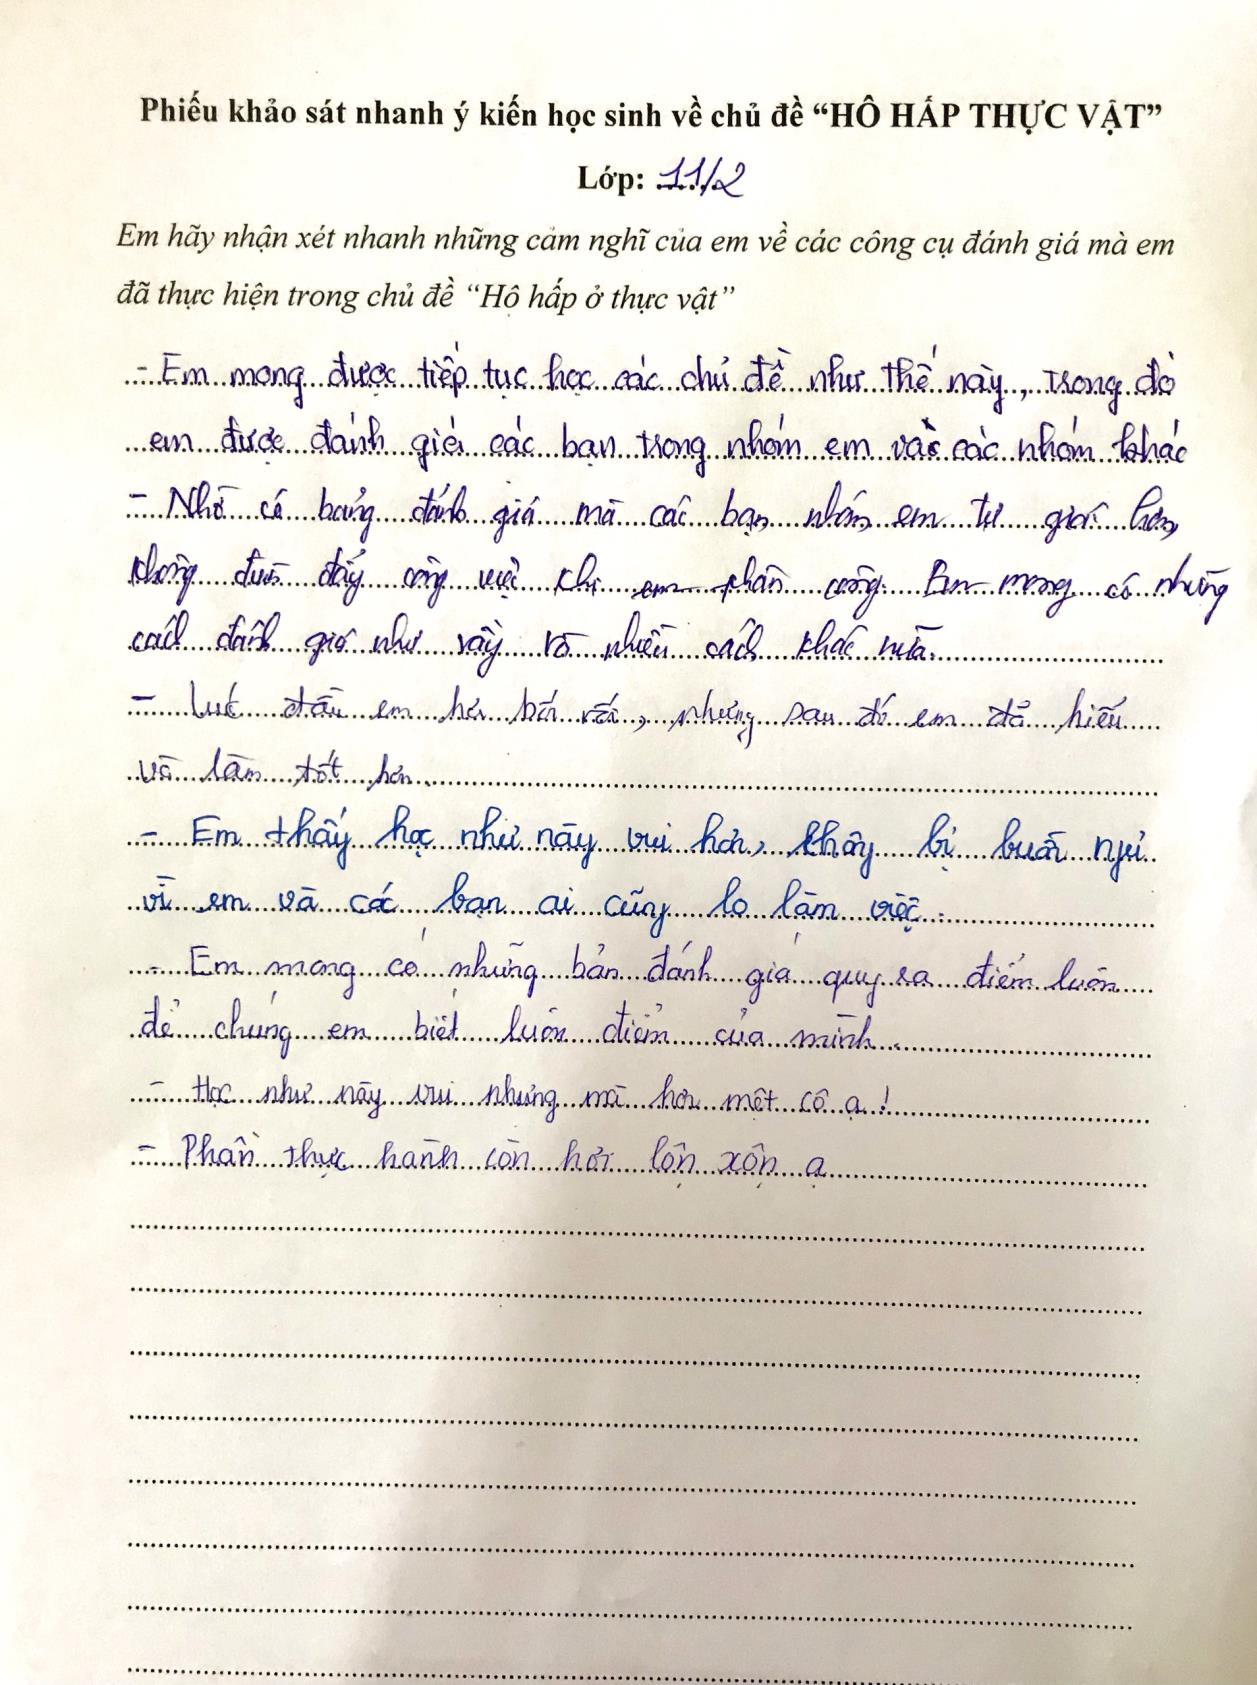 Phiếu khảo sát nhanh ý kiến học sinh về chủ đề “HÔ HẤP THỰC VẬT”
Lớp: 11/2
Em hãy nhận xét nhanh những cảm nghĩ của em về các công cụ đánh giá mà em
đã thực hiện trong chủ đề “Hô hấp ở thực vật”
- Em mong được tiếp tục học các chủ đề như thế này, trong đó
em được đánh giá các bạn trong nhóm em và các nhóm khác
- Nhờ có bảng đánh giá mà các bạn nhóm em tự giác hơn,
không đùn đẩy công việc khi em phân công. Em mong có những
cách đánh giá như vầy và nhiều cách khác nữa.
- Lúc đầu em hơi bối rối, nhưng sau đó em đã hiểu
và làm tốt hơn.
- Em thấy học như này vui hơn, không bị buồn ngủ
vì em và các bạn ai cũng lo làm việc.
- Em mong có những bản đánh giá quy ra điểm luôn
để chúng em biết luôn điểm của mình.
- Học như này vui nhưng mà hơi mệt cô ạ!
- Phần thực hành còn hơi lộn xộn ạ